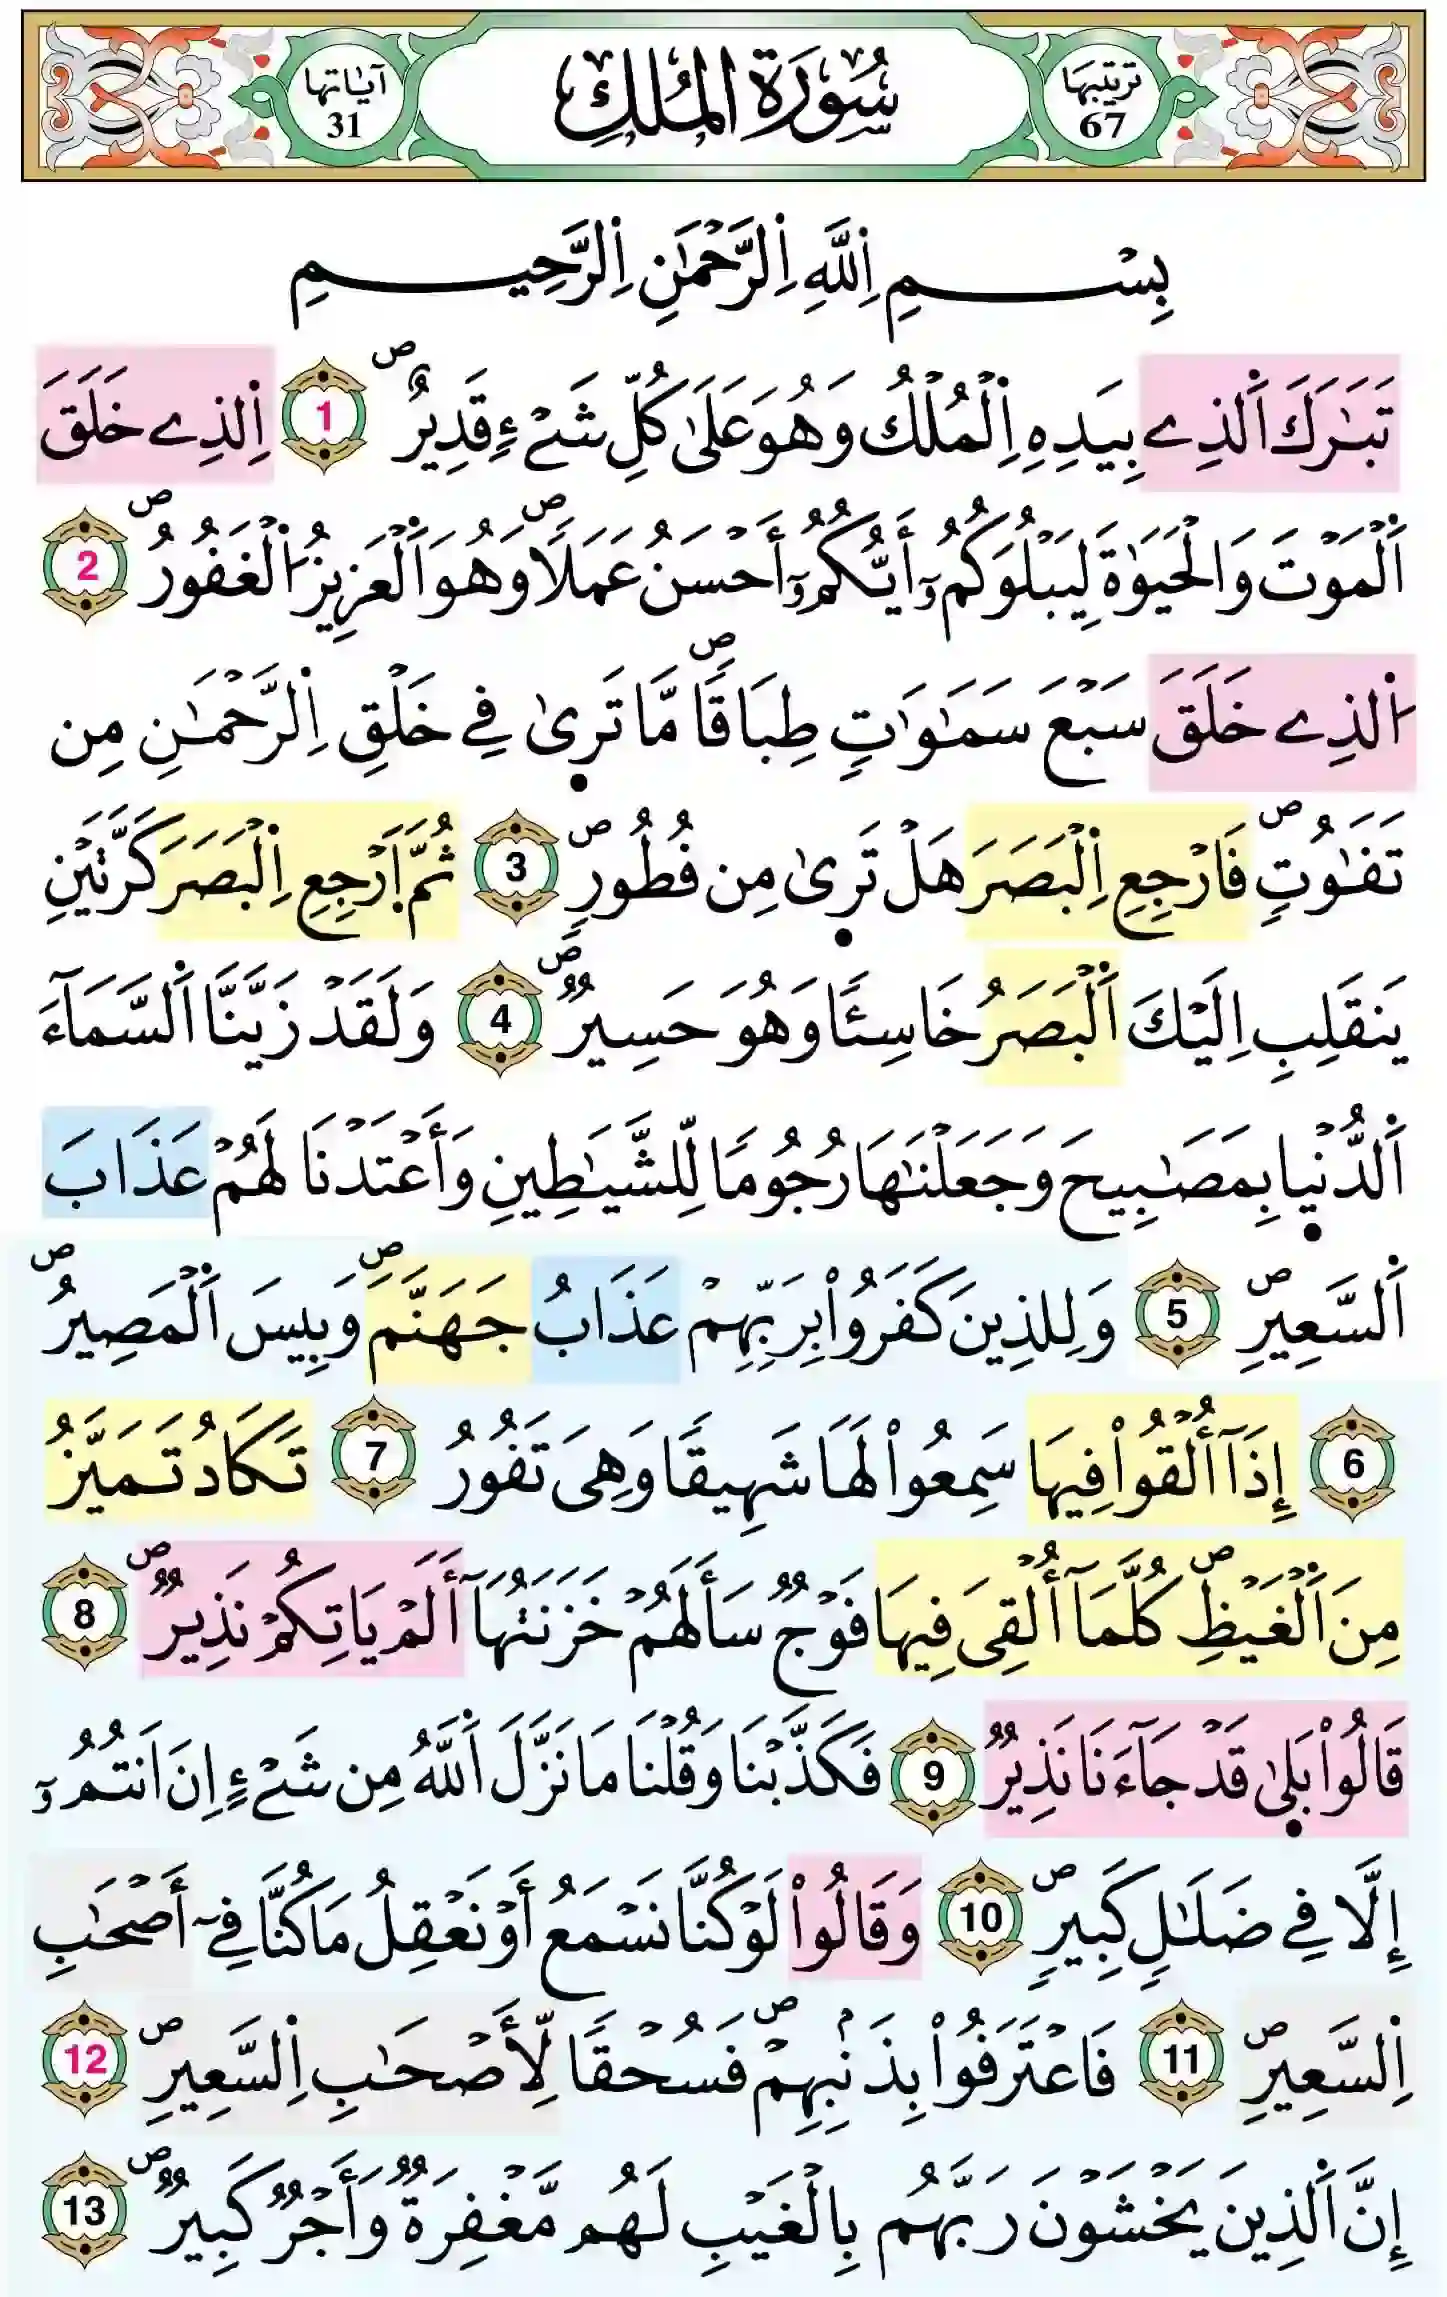 ترتيبها 67 سُورَةُ المُلْكِ آياتها 31
بِسْمِ اِللَّهِ اِلرَّحْمَٰنِ اِلرَّحِيمِ
تَبَٰرَكَ اَلذِے بِيَدِهِ اِلْمُلْكُ وَهُوَ عَلَىٰ كُلِّ شَےْءٖ قَدِيرٌ ۖ 1 اِلذِے خَلَقَ
اَلْمَوْتَ وَالْحَيَوٰةَ لِيَبْلُوَكُمُۥٓ أَيُّكُمُۥٓ أَحْسَنُ عَمَلاٗۖ وَهُوَ اَلْعَزِيزُ اُلْغَفُورُ ۖ 2
اُلذِے خَلَقَ سَبْعَ سَمَٰوَٰتٖ طِبَاقاٗۖ مَّا تَرِىٰ فِے خَلْقِ اِلرَّحْمَٰنِ مِن
تَفَٰوُتٖۖ فَارْجِعِ اِلْبَصَرَ هَلْ تَرِىٰ مِن فُطُورٖۖ 3 ثُمَّ اَرْجِعِ اِلْبَصَرَ كَرَّتَيْنِ
يَنقَلِبِ اِلَيْكَ اَلْبَصَرُ خَاسِئاٗ وَهُوَ حَسِيرٞۖ 4 وَلَقَدْ زَيَّنَّا اَلسَّمَآءَ
اَلدُّنْيِا بِمَصَٰبِيحَ وَجَعَلْنَٰهَا رُجُوماٗ لِّلشَّيَٰطِينِ وَأَعْتَدْنَا لَهُمْ عَذَابَ
اَلسَّعِيرِۖ 5 وَلِلذِينَ كَفَرُواْ بِرَبِّهِمْ عَذَابُ جَهَنَّمَۖ وَبِيسَ اَلْمَصِيرُۖ
6 إِذَآ أُلْقُواْ فِيهَا سَمِعُواْ لَهَا شَهِيقاٗ وَهِىَ تَفُورُ 7 تَكَادُ تَمَيَّزُ
مِنَ اَلْغَيْظِۖ كُلَّمَآ أُلْقِىَ فِيهَا فَوْجٞ سَأَلَهُمْ خَزَنَتُهَآ أَلَمْ يَاتِكُمْ نَذِيرٞۖ 8
قَالُواْ بَلِىٰ قَدْ جَآءَنَا نَذِيرٞ 9 فَكَذَّبْنَا وَقُلْنَا مَا نَزَّلَ اَللَّهُ مِن شَےْءٍ اِنَ اَنتُمُۥٓ
إِلَّا فِے ضَلَٰلٖ كَبِيرٖۖ 10 وَقَالُواْ لَوْ كُنَّا نَسْمَعُ أَوْ نَعْقِلُ مَا كُنَّا فِےٓ أَصْحَٰبِ
اِلسَّعِيرِۖ 11 فَاعْتَرَفُواْ بِذَنۢبِهِمْۖ فَسُحْقاٗ لِّأَصْحَٰبِ اِلسَّعِيرِۖ 12
إِنَّ اَلذِينَ يَخْشَوْنَ رَبَّهُم بِالْغَيْبِ لَهُم مَّغْفِرَةٞ وَأَجْرٞ كَبِيرٞۖ 13